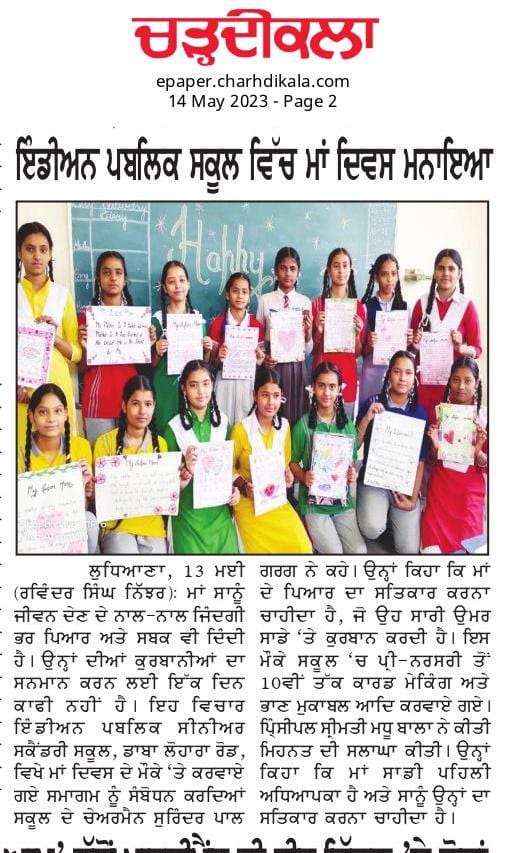 ਚੜ੍ਹਦੀਕਲਾ
epaper.charhdikala.com
14 May 2023 - Page 2
ਇੰਡੀਅਨ ਪਬਲਿਕ ਸਕੂਲ ਵਿੱਚ ਮਾਂ ਦਿਵਸ ਮਨਾਇਆ
Happy
ਲੁਧਿਆਣਾ, 13 ਮਈ
(ਰਵਿੰਦਰ ਸਿੰਘ ਨਿੱਝਰ): ਮਾਂ ਸਾਨੂੰ
ਜੀਵਨ ਦੇਣ ਦੇ ਨਾਲ-ਨਾਲ ਜਿੰਦਗੀ
ਭਰ ਪਿਆਰ ਅਤੇ ਸਬਕ ਵੀ ਦਿੰਦੀ
ਹੈ। ਉਨ੍ਹਾਂ ਦੀਆਂ ਕੁਰਬਾਨੀਆਂ ਦਾ
ਸਨਮਾਨ ਕਰਨ ਲਈ ਇੱਕ ਦਿਨ
ਕਾਫੀ ਨਹੀਂ ਹੈ। ਇਹ ਵਿਚਾਰ
ਇੰਡੀਅਨ ਪਬਲਿਕ ਸੀਨੀਅਰ
ਸਕੈਂਡਰੀ ਸਕੂਲ, ਡਾਬਾ ਲੋਹਾਰਾ ਰੋਡ,
ਵਿਖੇ ਮਾਂ ਦਿਵਸ ਦੇ ਮੌਕੇ ‘ਤੇ ਕਰਵਾਏ
ਗਏ ਸਮਾਗਮ ਨੂੰ ਸੰਬੋਧਨ ਕਰਦਿਆਂ
ਸਕੂਲ ਦੇ ਚੇਅਰਮੈਨ ਸੁਰਿੰਦਰ ਪਾਲ
ਗਰਗ ਨੇ ਕਹੇ। ਉਨ੍ਹਾਂ ਕਿਹਾ ਕਿ ਮਾਂ
ਦੇ ਪਿਆਰ ਦਾ ਸਤਿਕਾਰ ਕਰਨਾ
ਚਾਹੀਦਾ ਹੈ, ਜੋ ਉਹ ਸਾਰੀ ਉਮਰ
ਸਾਡੇ ‘ਤੇ ਕੁਰਬਾਨ ਕਰਦੀ ਹੈ। ਇਸ
ਮੌਕੇ ਸਕੂਲ ‘ਚ ਪ੍ਰੀ-ਨਰਸਰੀ ਤੋਂ
10ਵੀਂ ਤੱਕ ਕਾਰਡ ਮੇਕਿੰਗ ਅਤੇ
ਭਾਣ ਮੁਕਾਬਲ ਆਦਿ ਕਰਵਾਏ ਗਏ।
ਪ੍ਰਿੰਸੀਪਲ ਸ੍ਰੀਮਤੀ ਮਧੂ ਬਾਲਾ ਨੇ ਕੀਤੀ
ਮਿਹਨਤ ਦੀ ਸਲਾਘਾ ਕੀਤੀ। ਉਨ੍ਹਾਂ
ਕਿਹਾ ਕਿ ਮਾਂ ਸਾਡੀ ਪਹਿਲੀ
ਅਧਿਆਪਕਾ ਹੈ ਅਤੇ ਸਾਨੂੰ ਉਨ੍ਹਾਂ ਦਾ
ਸਤਿਕਾਰ ਕਰਨਾ ਚਾਹੀਦਾ ਹੈ।